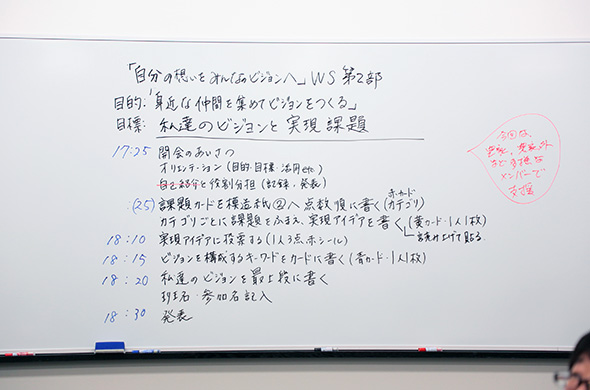 「自分の想いをみんなのビジョンへ」WS 第2部
目的:「身近な仲間を集めてビジョンをつくる」
目標: 私達のビジョンと実現課題
17:25 開会のあいさつ
オリエンテーション(目的・目標・活用etc)
自己紹介と役割分担(記録・発表)
:(25) 課題カードを模造紙②へ点数順に書く(カテゴリ)
赤カード
カテゴリごとに課題をふまえ、実現アイデアを書く(黄カード・1人1枚)
読み上げて貼る
18:10 実現アイデアに投票する(1人3点、赤シール)
18:15 ビジョンを構成するキーワードをカードに書く(青カード・1人1枚)
18:20 私達のビジョンを最上段に書く
班名・参加名記入
18:30 発表
今回は、
など多様な
メンバーで
支援